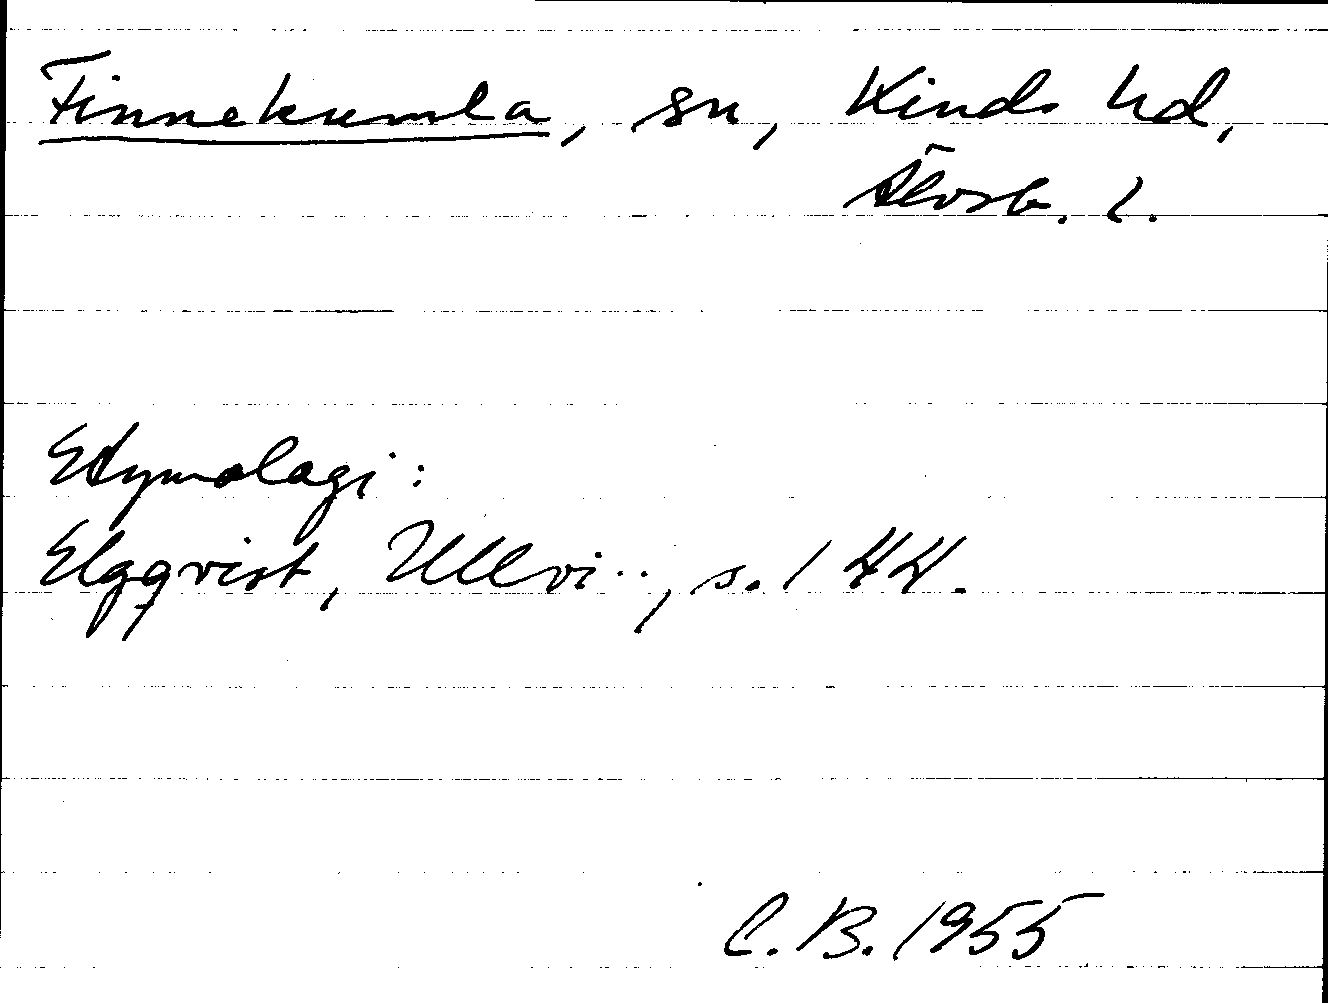 Finnekumla, sn, Kinds hd,
Älvsb. l.
Etymologi:
Elgqvist, Ullvi.., s. 144.
C. B. 1955